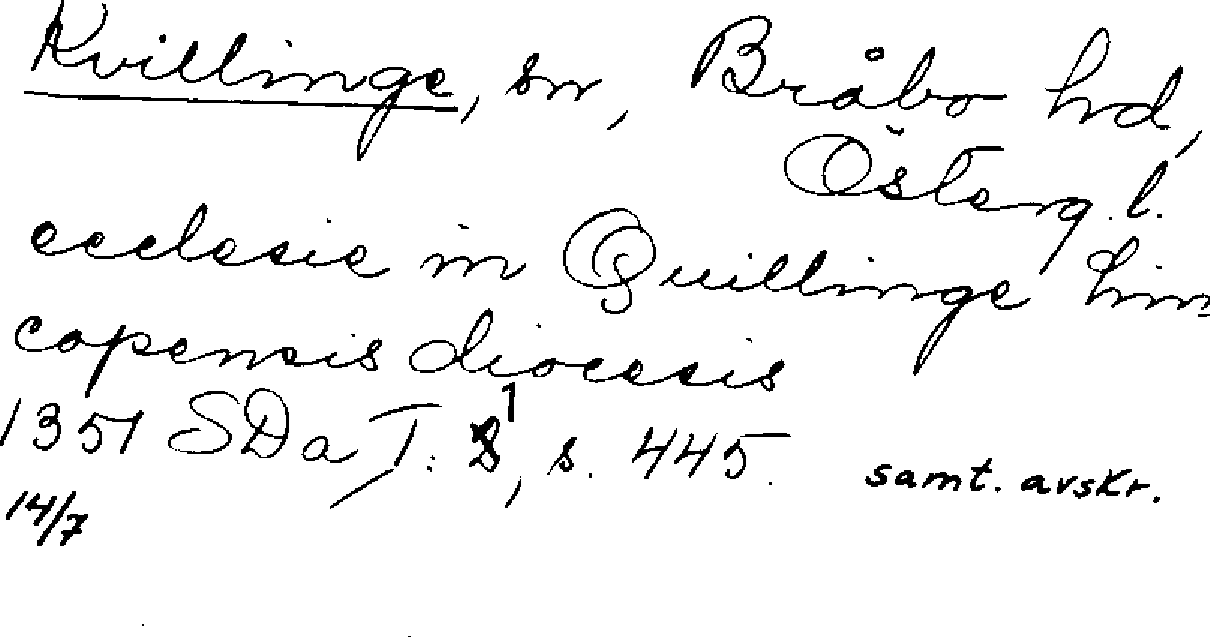 Kvillinge, sn, Bråbo hd,
Österg. l.
ecclesie in Quillinge lin
copensis diocesis
1351 SDa T: 1, s. 445. samt. avskr.
14/7